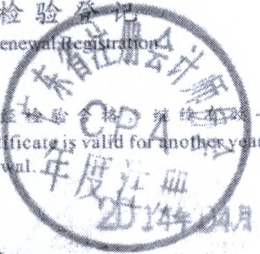 检验登记
enewal Registration
检验合格,继续有效一
tificate is valid for another year
wal.
广东省注册会计师协会
CPA
年度注册
2014年04月